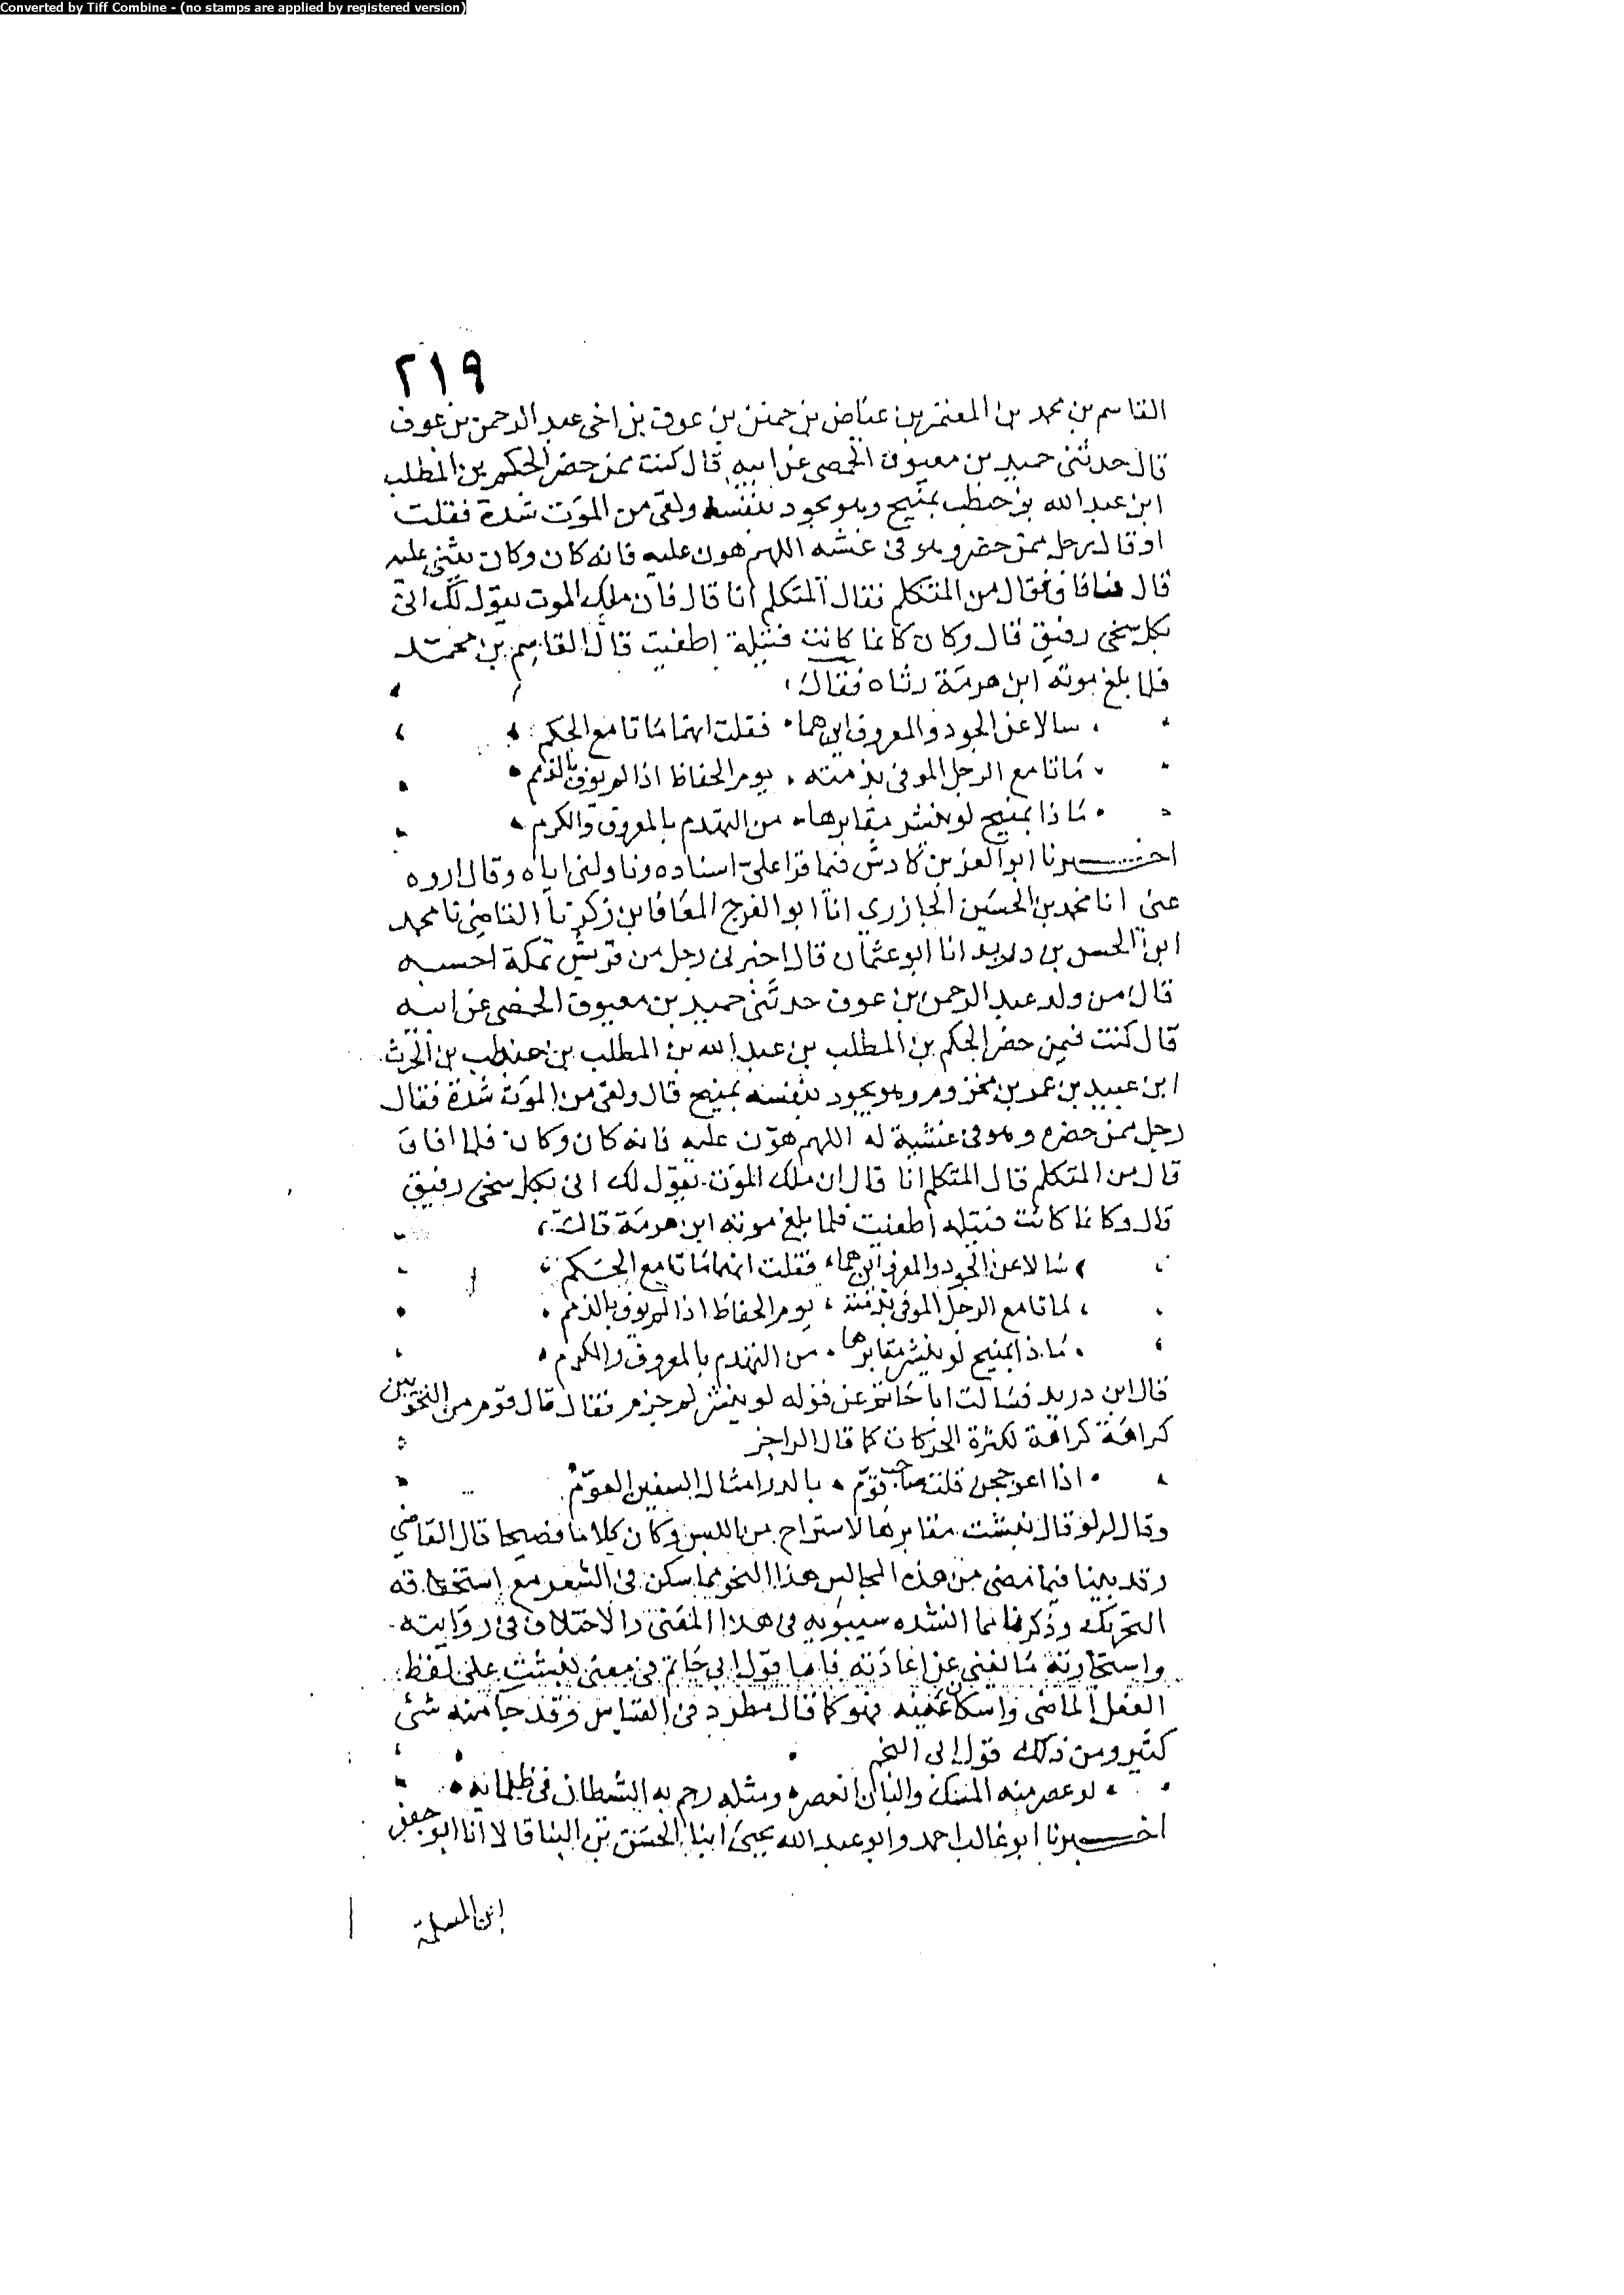 Converted by Tiff Combine - (no stamps are applied by registered version)
٢١٩
القاسم بن محمد بن المعتمر بن عياض بن حمنن بن عوف بن اخى عبد الرحمن بن عوف
قال حدثنى حميد بن معيوف الحمصى عن ابيه قال كنت ممن حضر الحكم بن المطلب
ابن عبد الله بن حنطب بمنبج وهو يجود بنفسه ولقى من الموت شدة فقلت
او قال رجل ممن حضر وهو فى غشيه اللهم هون عليه فانه كان وكان يثنى عليه
قال فافاق فقال من المتكلم فقال المتكلم انا قال فان ملك الموت يقول لك انى
بكل سخى رفيق قال وكان كانما كانت فتيلة اطفيت قال القاسم بن محمد
فلما بلغ موته ابن هرمة رثاه فقال
سالا عن الجود والمعروف اين هما فقلت انهما ماتا مع الحكم
ماتا مع الرجل الموفى بذمته يوم الحفاظ اذا لم يوف بالذمم
ماذا بمنبج لو ينشر مقابرها من التهدم بالمعروف والكرم
اخبرنا ابو العز بن كادش فيما قرا على اسناده وناولنى اياه وقال اروه
عنى انا محمد بن الحسين الجازرى انا ابو الفرج المعافا بن زكريا القاضى نا محمد
ابن الحسن بن دريد انا ابو عثمان قال اخبرنى رجل من قريش بمكة احسبه
قال من ولد عبد الرحمن بن عوف حدثنى حميد بن معيوف الحمصى عن ابيه
قال كنت فيمن حضر الحكم بن المطلب بن عبد الله بن المطلب بن حنطب بن الحرث
ابن عبيد بن عمر بن مخزوم وهو يجود بنفسه بمنبج قال ولقى من الموت شدة فقال
رجل ممن حضره وهو فى غشية له اللهم هون عليه فانه كان وكان فلما افاق
قال من المتكلم قال المتكلم انا قال ان ملك الموت يقول لك انى بكل سخى رفيق
قال وكانما كانت فتيله اطفيت فلما بلغ موته ابن هرمة قال
سالا عن الجود والمعروف اين هما فقلت انهما ماتا مع الحكم
ماتا مع الرجل الموفى بذمته يوم الحفاظ اذا لم يوف بالذمم
ماذا بمنبج لو ينشر مقابرها من التهدم بالمعروف والكرم
قال ابن دريد فسالت ابا حاتم عن قوله لو ينشر لم جزم فقال قال قوم من النحويين
كراهة كراهة لكثرة الحركات كما قال الراجز
اذا اعوججن قلت صاحب قوم بالدو امثال السفين العوم
وقال لو قال نبشت مقابرها لاستراح من اللبس وكان كلاما فصيحا قال القاضى
وقد بينا فيما مضى من هذه المجالس هذا النحو مما سكن فى الشعر مع استحقاقه
التحريك وذكرنا ما انشده سيبويه فى هذا المعنى والاختلاف فى روايته
واستجازته ما يغنى عن اعادته فاما قول ابى حاتم فى معنى نبشت على لفظ
الفعل الماضى واسكان عينه فهو كما قال مطرد فى القياس وقد جا منه شئ
كثير ومن ذلك قول ابى النجم
لو عصر منه المسك والبان انعصر ومثله رجم به الشيطان فى ظلمائه
اخبرنا ابو غالب احمد وابو عبد الله يحيى ابنا الحسن بن البنا قالا انا ابو جعفر
ابن المسلمة